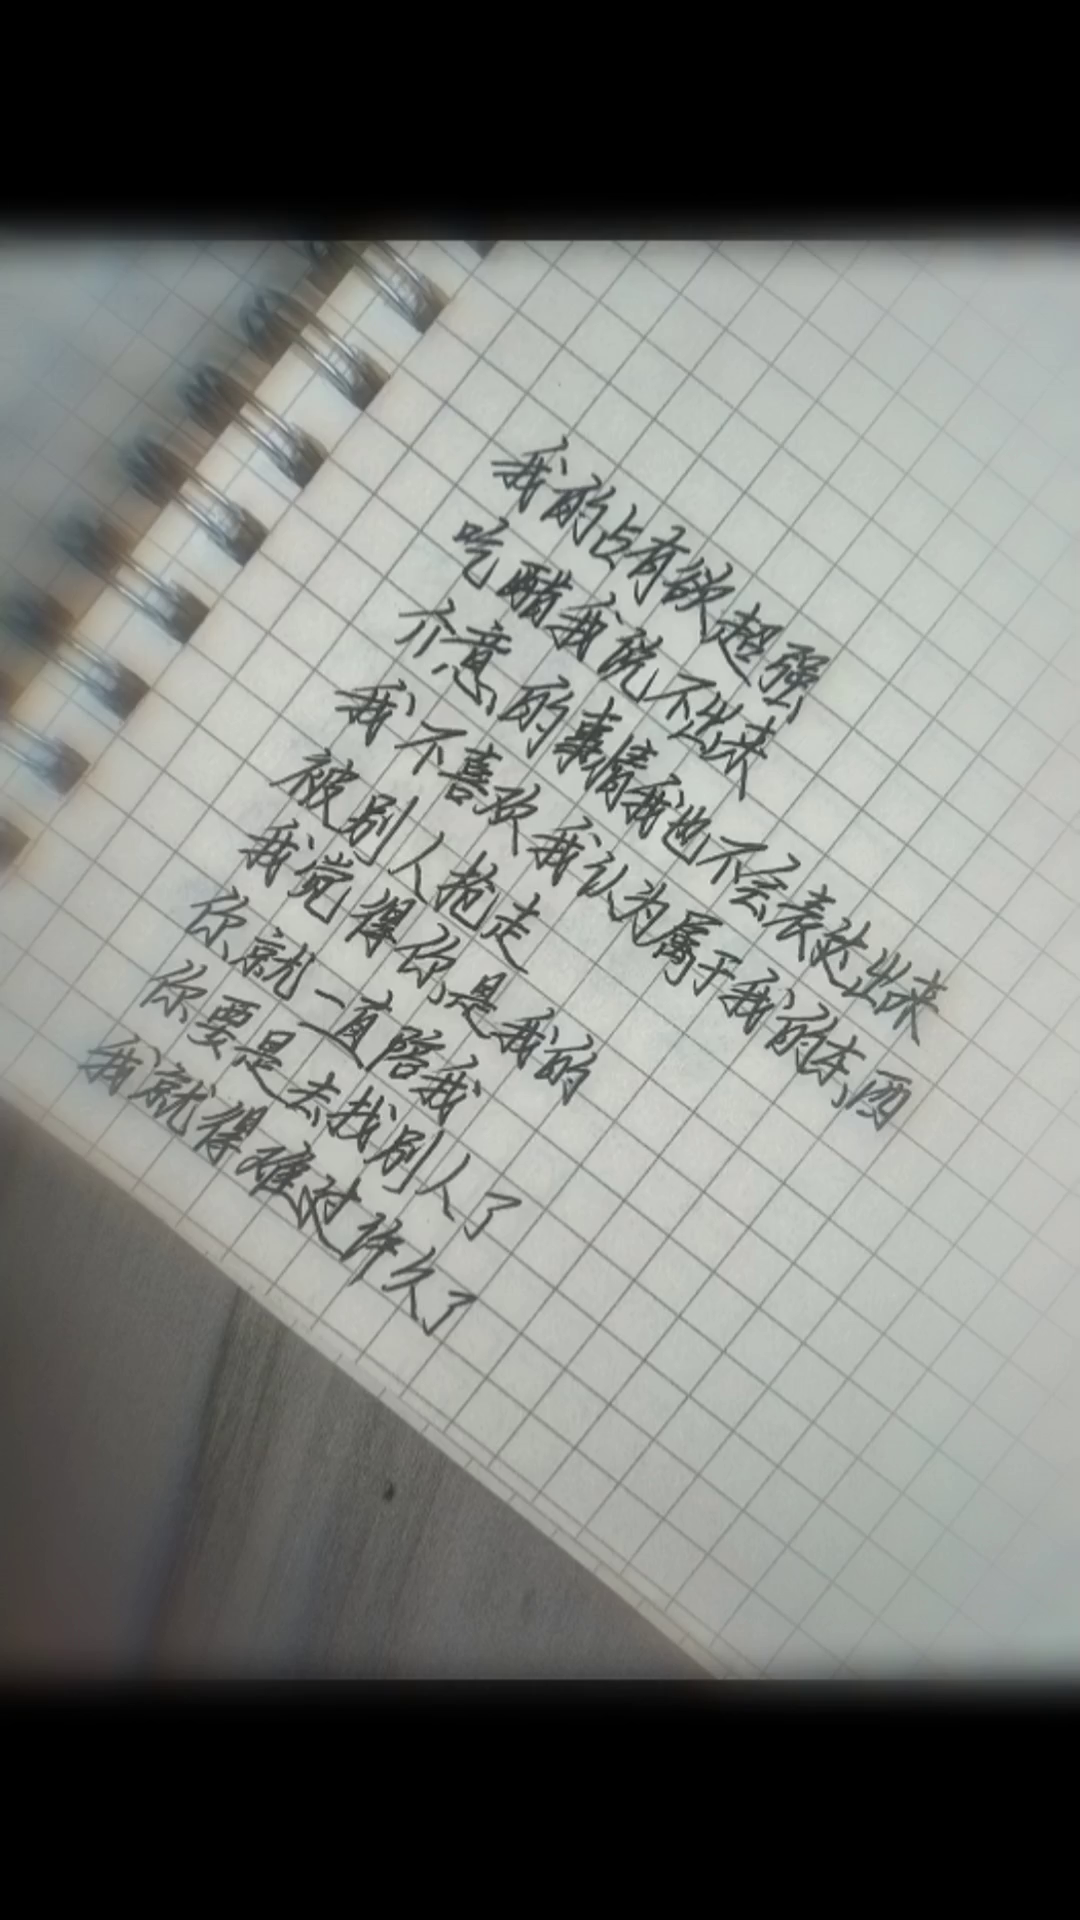 我的占有欲超强
吃醋我说不出来
介意的事情我也不会表达出来
我不喜欢我认为属于我的东西
被别人抢走
我觉得你是我的
你就一直陪我
你要是去找别人了
我就得难过许久了